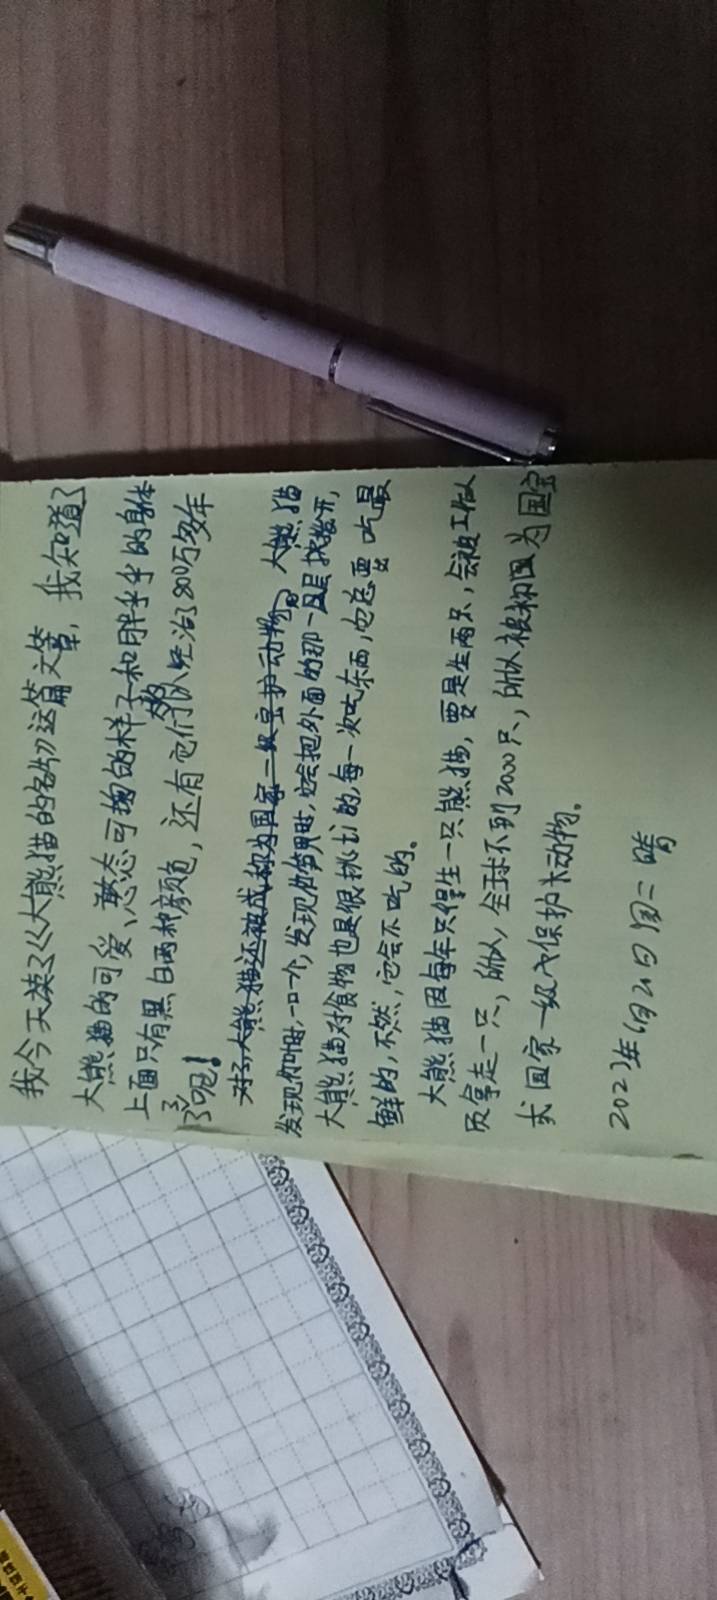 我今天读了《大熊猫的名片》这篇文章，我知道了
大熊猫的可爱、憨态可掬的样子和胖乎乎的身体
上面只有黑白两种颜色，还有它们已经活了800万多年
了呢！
对了，大熊猫还被成称为国家二级宝护动物。大熊猫
发现你叫时，一口一个，发现你笋用时，它会把外面的那一层层拨开，
大熊猫对食物也是很挑ti的，每一次吃东西，它总要吃最
鲜的，不然，它会不吃的。
大熊猫因每年只但生一只熊猫，要是生两只，会被工作人
员拿走一只，所以，全球不到2000只，所以被称国为国宝
或国家一级保护动物。
2023年6月20日 周二 晴